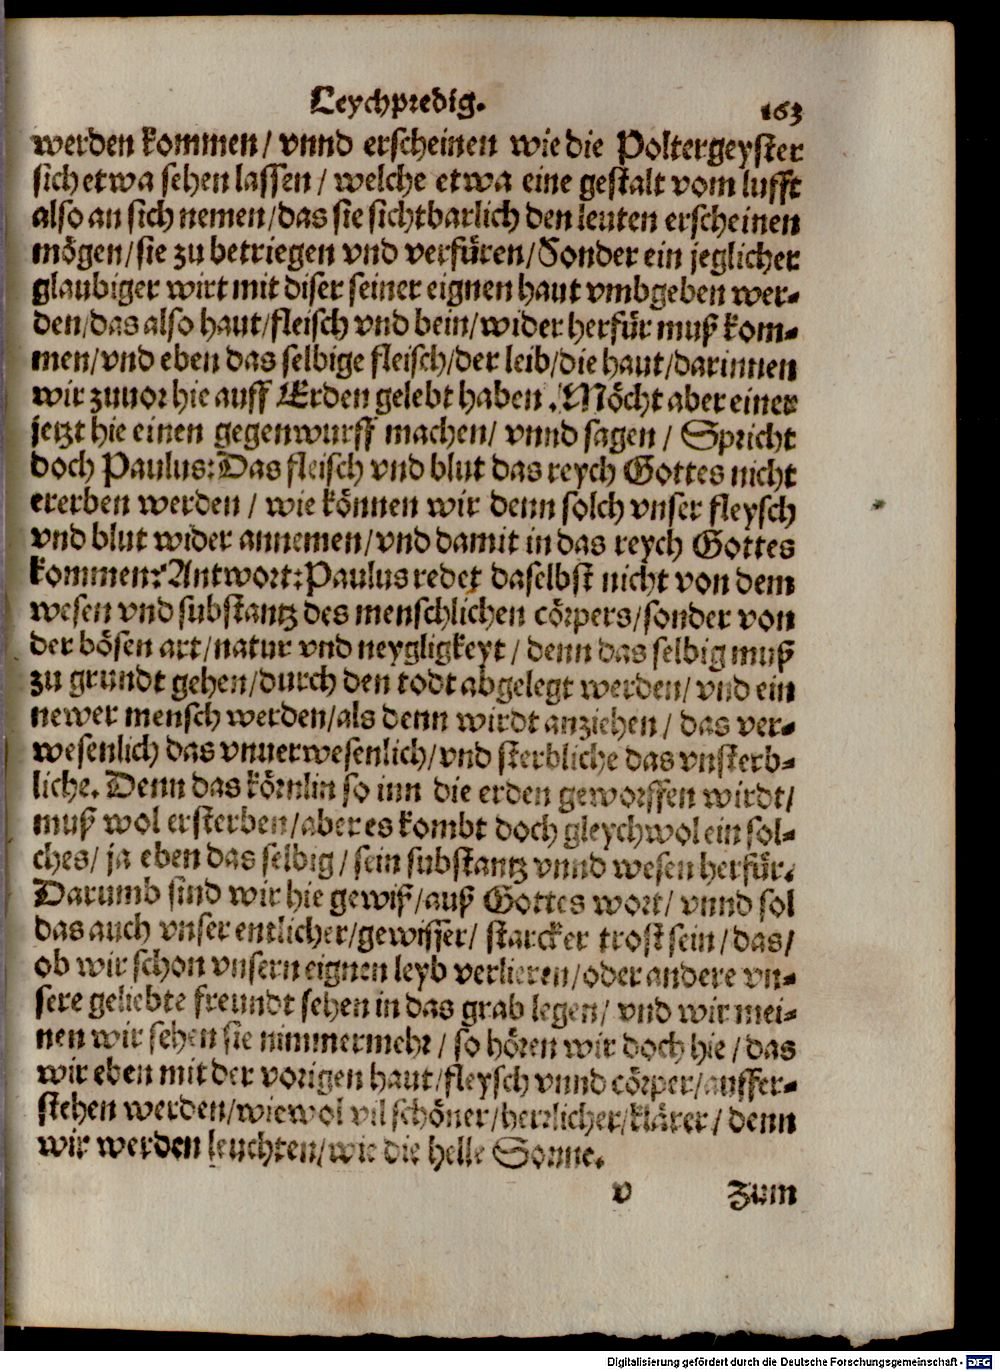 Leychpredig. 163
werden kommen/ vnnd erscheinen wie die Poltergeyster
sich etwa sehen lassen/ welche etwa eine gestalt vom lufft
also an sich nemen/das sie sichtbarlich den leuten erscheinen
mögen/sie zu betriegen vnd verfüren/Sonder ein jeglicher
glaubiger wirt mit diser seiner eignen haut vmbgeben wer-
den/das also haut/fleisch vnd bein/wider herfür muß kom-
men/vnd eben das selbige fleisch/der leib/die haut/darinnen
wir zuuor hie auff Erden gelebt haben. Möcht aber einer
jetzt hie einen gegenwurff machen/ vnnd sagen/ Spricht
doch Paulus: Das fleisch vnd blut das reych Gottes nicht
ererben werden/ wie können wir denn solch vnser fleysch
vnd blut wider annemen/vnd damit in das reych Gottes
kommen? Antwort: Paulus redet daselbst nicht von dem
wesen vnd substantz des menschlichen cörpers/sonder von
der bösen art/natur vnd neygligkeyt/ denn das selbig muß
zu grundt gehen/durch den todt abgelegt werden/ vnd ein
newer mensch werden/als denn wirdt anziehen/ das ver-
wesenlich das vnuerwesenlich/vnd sterbliche das vnsterb-
liche. Denn das körnlin so inn die erden geworffen wirdt/
muß wol ersterben/aber es kombt doch gleychwol ein sol-
ches/ ja eben das selbig/ sein substantz vnnd wesen herfür.
Darumb sind wir hie gewiß/auß Gottes wort/ vnnd sol
das auch vnser entlicher/gewisser/ starcker trost sein/das/
ob wir schon vnsern eignen leyb verlieren/oder andere vn-
sere geliebte freundt sehen in das grab legen/ vnd wir mei-
nen wir sehen sie nimmermehr/ so hören wir doch hie/das
wir eben mit der vorigen haut/fleysch vnnd cörper/auffer-
stehen werden/wiewol vil schöner/herrlicher/klärer/ denn
wir werden leuchten/wie die helle Sonne.
v Zum
Digitalisierung gefördert durch die Deutsche Forschungsgemeinschaft - DFG